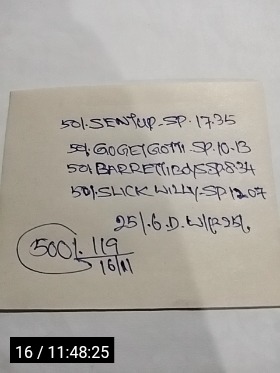 50/. SENTUP - SP. 17.35
50/. GOGETGOTTI. SP. 10.13
50/. BARRETTIBOYS SP 8.34
50/. SLICK WILLY - SP 12.07
25/. 6. D. W/R 35/.
500/. 119
16/11
16 / 11:48:25